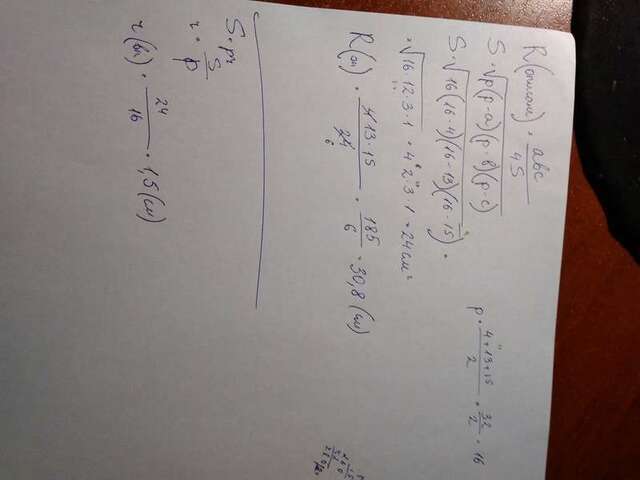 R(описан) = abc / 4S
S = √p(p-a)(p-b)(p-c)
S = √16(16-4)(16-13)(16-15) =
= √16·12·3·1 = 4·2·3·1 = 24 см²
p = 4+13+15 / 2 = 32 / 2 = 16
R(оп) = 4·13·15 / 24 = 185 / 6 = 30,8 (см)
6
S = pr
r = S / p
r(вп) = 24 / 16 = 1,5 (см)